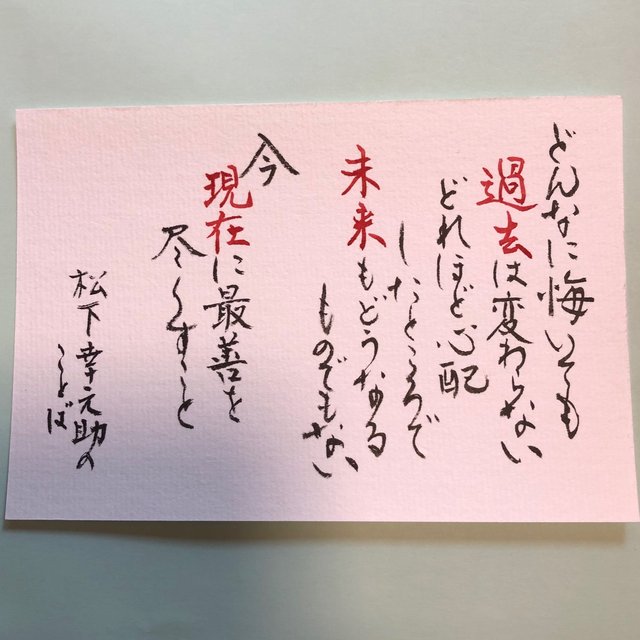 どんなに悔いても
過去は変わらない
どれほど心配
したところで
未来もどうなる
ものでもない
今
現在に最善を
尽くすこと
松下幸元助の
ことば